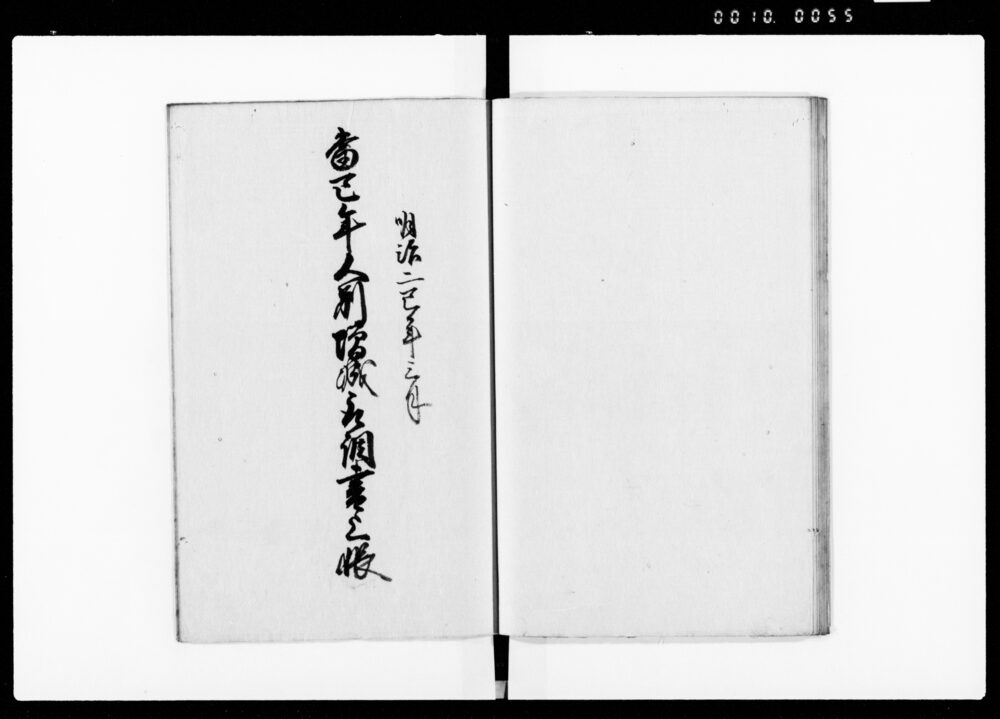 0010.0055
明治二巳年三月
當巳年人別増減取調書上帳